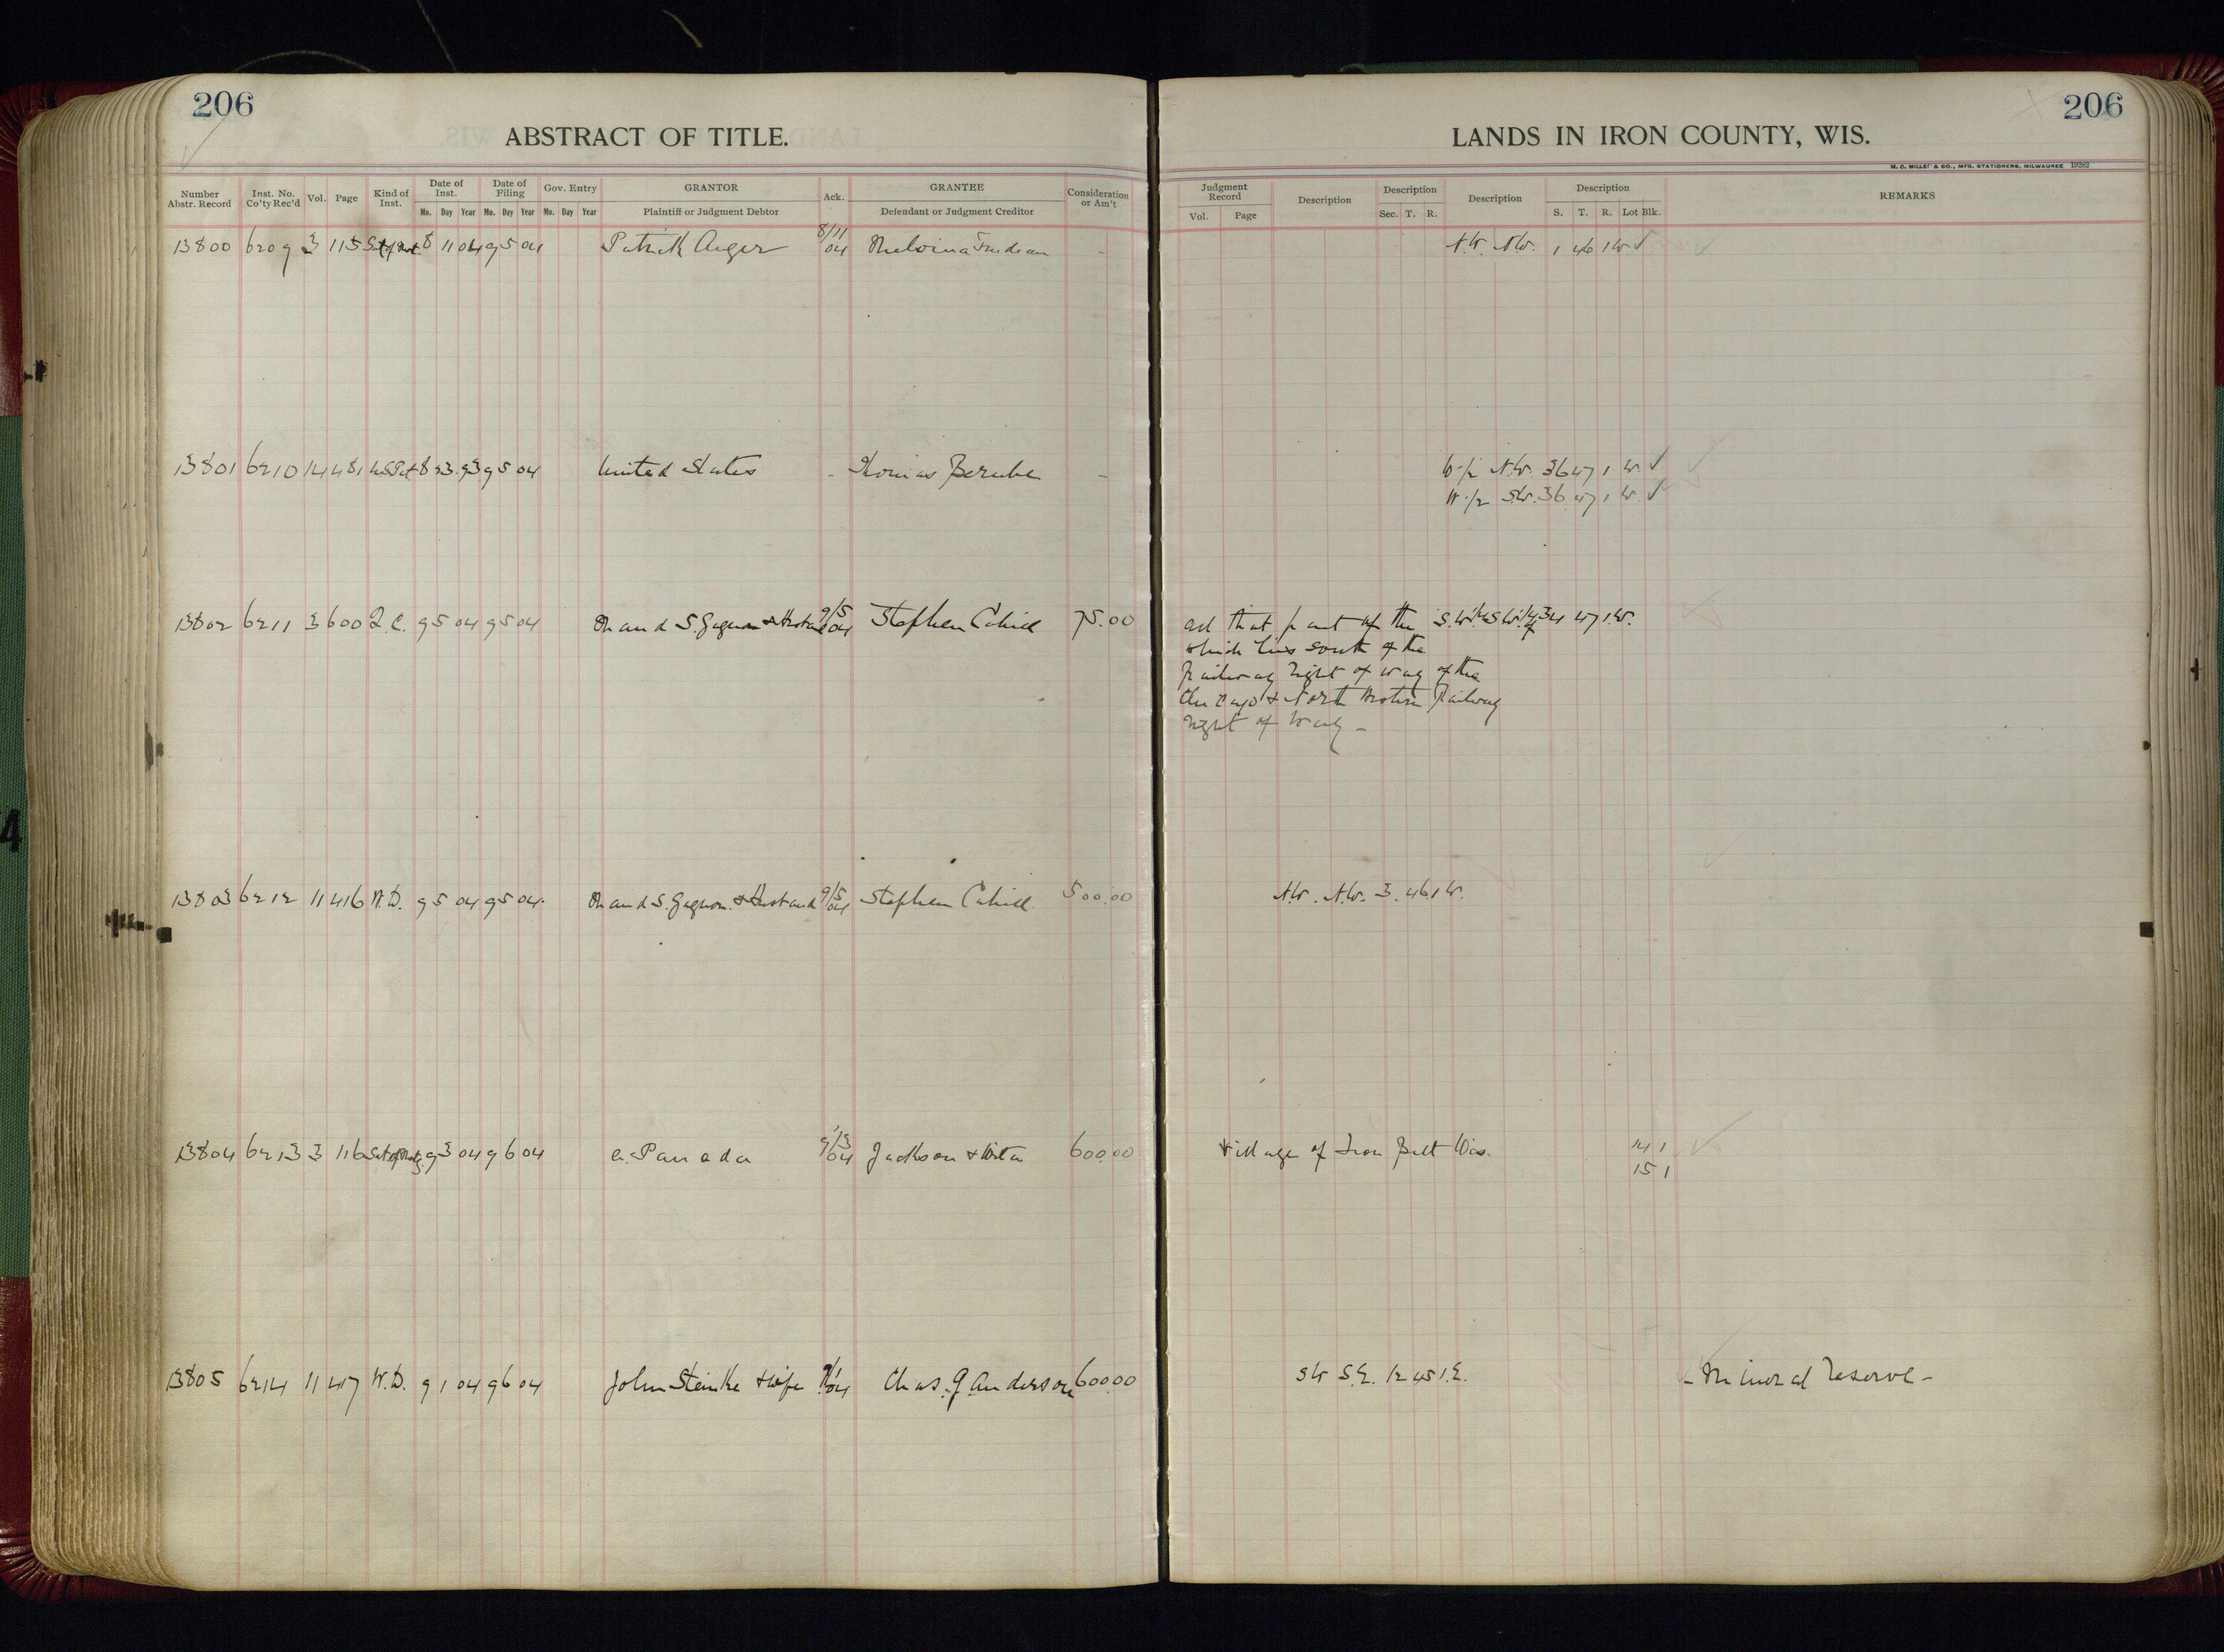 206
ABSTRACT OF TITLE.
Number Abstr. Record | Inst. No. Co'ty Rec'd | Vol. | Page | Kind of Inst. | Date of Inst. Mo. Day Year | Date of Filing Mo. Day Year | Gov. Entry Mo. Day Year | GRANTOR Plaintiff or Judgment Debtor | Ack. | GRANTEE Defendant or Judgment Creditor | Consideration or Am't
13800 6209 3 115 8 11 04 9 5 04 Patrick Auger 8/11 04 Melvina Trudeau -
13801 6210 14 481 U.S.Pat 8 23 93 9 5 04 United States - Thomas Berube -
13802 6211 3 600 Q.C. 9 5 04 9 5 04 Maud S. Gagnon & Husband 9/5 04 Stephen Cahill 75.00
13803 6212 11 416 W.D. 9 5 04 9 5 04 Maud S. Gagnon & Husband 9/5 04 Stephen Cahill 500.00
13804 6213 3 116 Sat of Mtg. 9 3 04 9 6 04 Panada 9/3 04 Jackson & 600.00
13805 6214 11 417 W.D. 9 1 04 9 6 04 John Steinke & wife 9/1 04 Chas. G. Anderson 600.00
206
LANDS IN IRON COUNTY, WIS.
M. C. MILLER & CO., MFG. STATIONERS, MILWAUKEE 19282
Judgment Record Vol. Page | Description | Description Sec. T. R. | Description | Description S. T. R. Lot Blk. | REMARKS
N.W. N.W. 1 46 1 W. ✓
W 1/2 N.W. 36 47 1 W. ✓
W 1/2 S.W. 36 47 1 W. ✓
All that part of the S.W.1/4 S.W.1/4 of 34 47 1 W.
which lies south of the
Railway right of way of the
Chicago & North Western Railway
right of way -
N.W. N.W. 3. 46 1 W.
Village of Iron Belt Wis. 14 1
15 1
SW S.E. 12 45 1 E. - Mineral reserve -